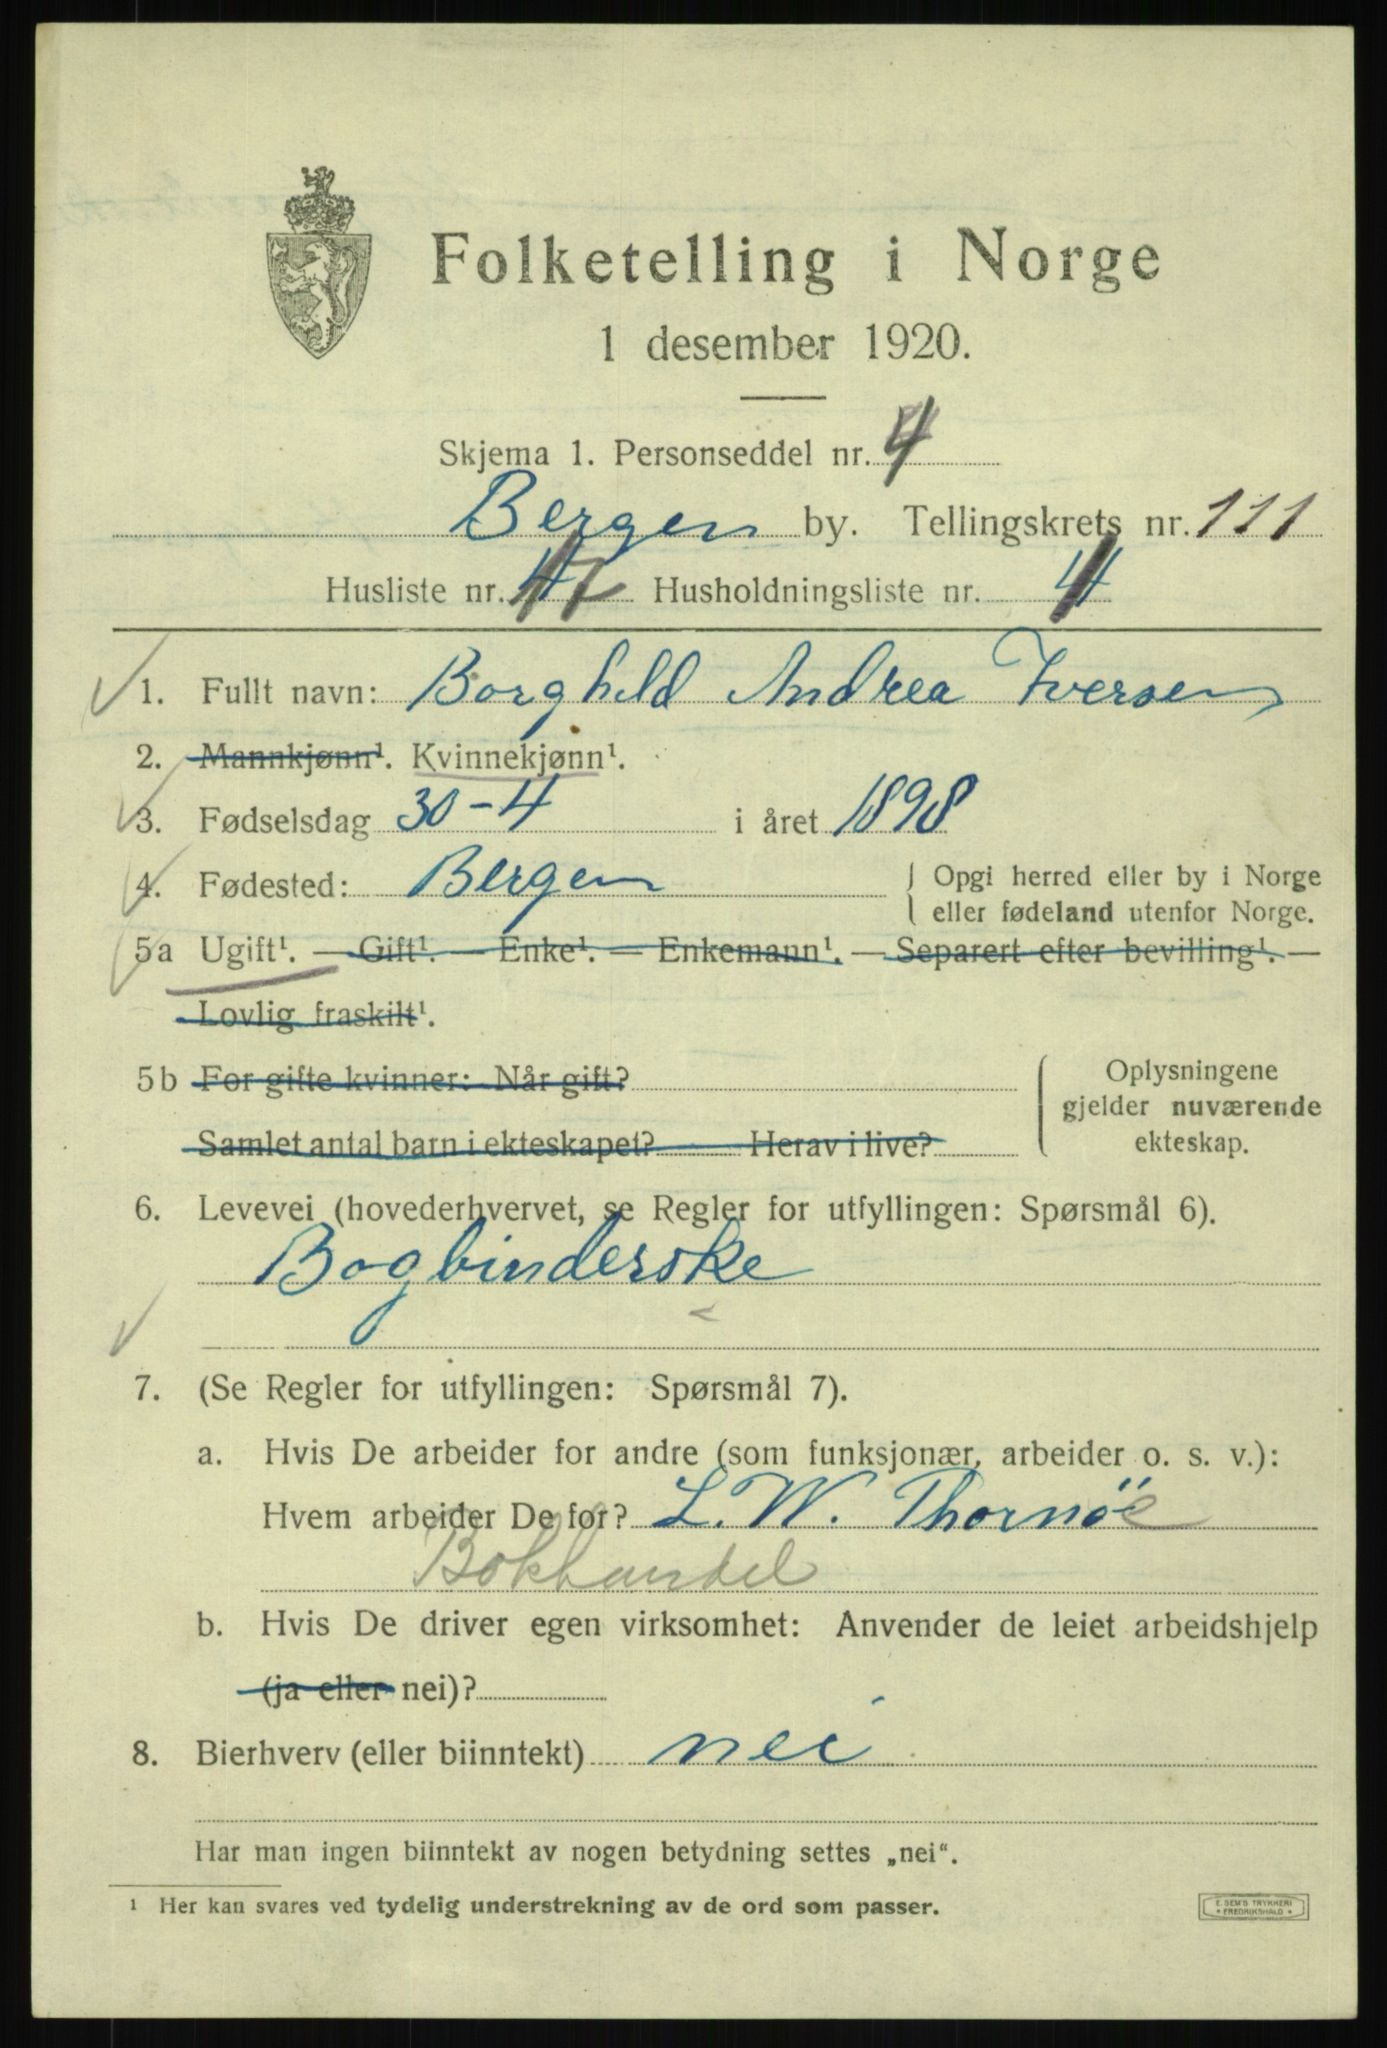 Folketelling i Norge
1 desember 1920.
Skjema 1. Personseddel nr. 4
Bergen by. Tellingskrets nr. 111
Husliste nr. Husholdningsliste nr.
1. Fullt navn: Borghild Andrea Iversen
2. Mannkjønn¹. Kvinnekjønn¹.
3. Fødselsdag 30-4 i året 1898
4. Fødested: Bergen { Opgi herred eller by i Norge
eller fødeland utenfor Norge.
5a Ugift¹. — Gift¹. — Enke¹. — Enkemann¹. — Separert efter bevilling¹. —
Lovlig fraskilt¹.
5b For gifte kvinner: Når gift?
Samlet antal barn i ekteskapet? Herav i live?
Oplysningene
gjelder nuværende
ekteskap.
6. Levevei (hovederhvervet, se Regler for utfyllingen: Spørsmål 6).
Bogbinderske
7. (Se Regler for utfyllingen: Spørsmål 7).
a. Hvis De arbeider for andre (som funksjonær, arbeider o. s. v.):
Hvem arbeider De for? L. W. Thornöe
Bokhandel
b. Hvis De driver egen virksomhet: Anvender de leiet arbeidshjelp
(ja eller nei)?
8. Bierhverv (eller biinntekt) nei
Har man ingen biinntekt av nogen betydning settes „nei“.
¹ Her kan svares ved tydelig understrekning av de ord som passer.
E. SEM'S TRYKKERI
• FREDRIKSHALD •